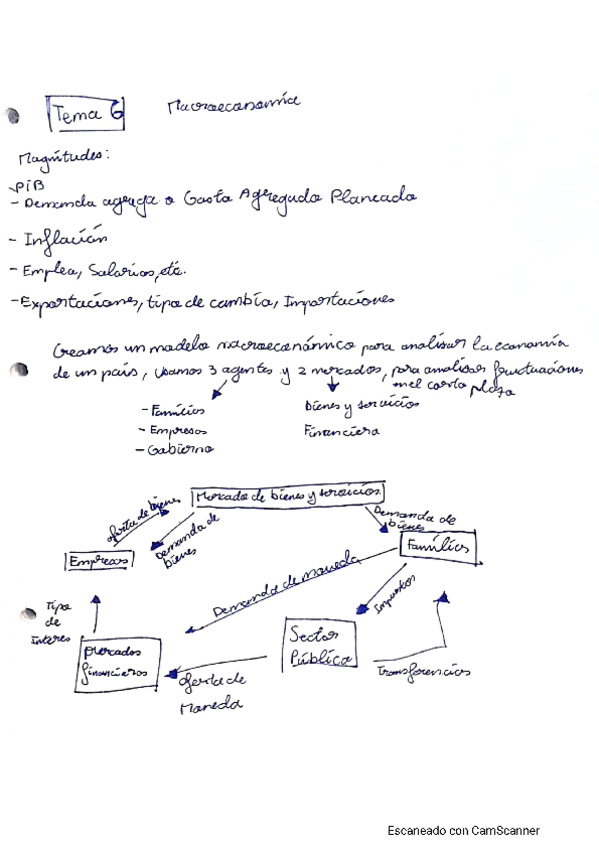 Tema 6 Macroeconomía
Magnitudes:
PiB
- Demanda agrega o Gasto Agregado Planeado
- Inflación
- Empleo, Salarios, etc.
- Exportaciones, tipo de cambio, Importaciones
Creamos un modelo macroeconómico para analizar la economía
de un país, usamos 3 agentes y 2 mercados, para analizar fluctuaciones
en el corto plazo
- Familias
- Empresas
- Gobierno
Bienes y servicios
Financiero
Mercado de bienes y servicios
oferta de bienes
Demanda de
bienes
Demanda de
bienes
Empresas
Familias
Demanda de moneda
Impuestos
Tipo
de
Interes
Mercados
financieros
Sector
Público
oferta de
Moneda
Transferencias
Escaneado con CamScanner